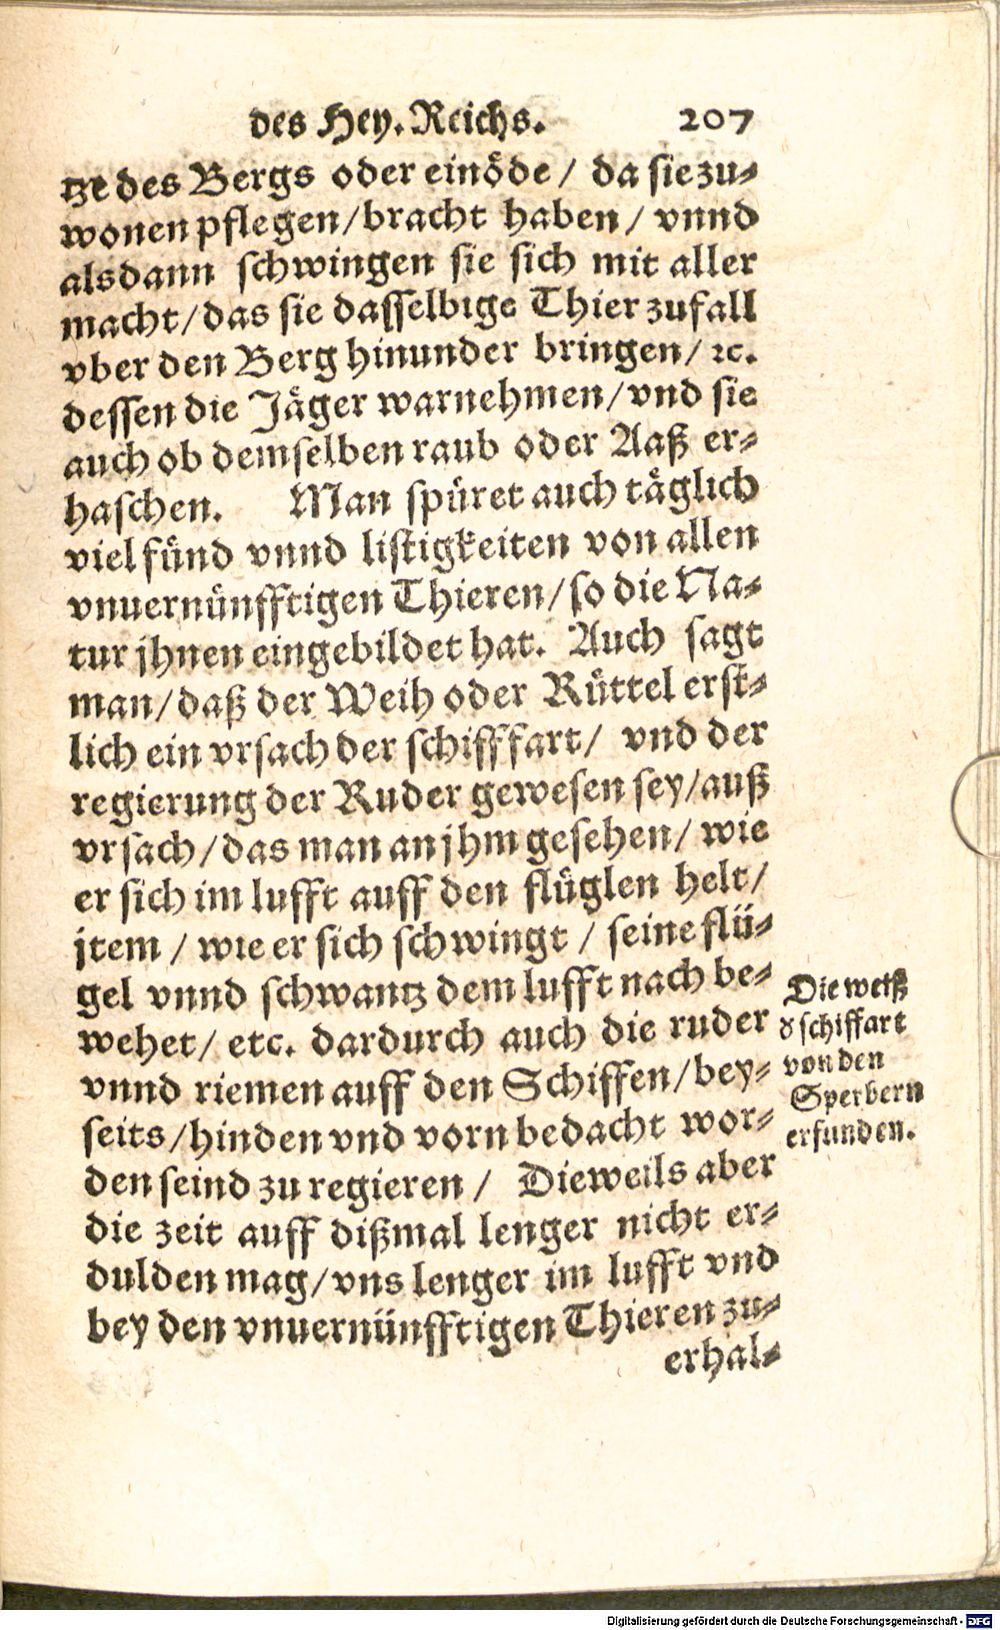 des Hey. Reichs. 207
tze des Bergs oder einöde / da sie zu-
wonen pflegen/bracht haben/ vnnd
alsdann schwingen sie sich mit aller
macht/das sie dasselbige Thier zufall
vber den Berg hinunder bringen/ ꝛc.
dessen die Jäger warnehmen/vnd sie
auch ob demselben raub oder Aaß er-
haschen. Man spüret auch täglich
viel fünd vnnd listigkeiten von allen
vnuernünfftigen Thieren/so die Na-
tur jhnen eingebildet hat. Auch sagt
man/daß der Weih oder Rüttel erst-
lich ein vrsach der schifffart/ vnd der
regierung der Ruder gewesen sey/auß
vrsach/das man an jhm gesehen/ wie
er sich im lufft auff den flüglen helt/
jtem / wie er sich schwingt / seine flü-
gel vnnd schwantz dem lufft nach be-
wehet/ etc. dardurch auch die ruder
vnnd riemen auff den Schiffen/bey-
seits/hinden vnd vorn bedacht wor-
den seind zu regieren / Dieweils aber
die zeit auff dißmal lenger nicht er-
dulden mag/vns lenger im lufft vnd
bey den vnuernünfftigen Thieren zu-
erhal-
Die weiß
d schiffart
von den
Sperbern
erfunden.
Digitalisierung gefördert durch die Deutsche Forschungsgemeinschaft - DFG